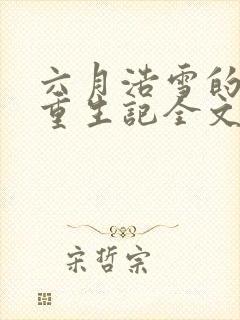 六月浩雪的
重生記全文
宋哲宗